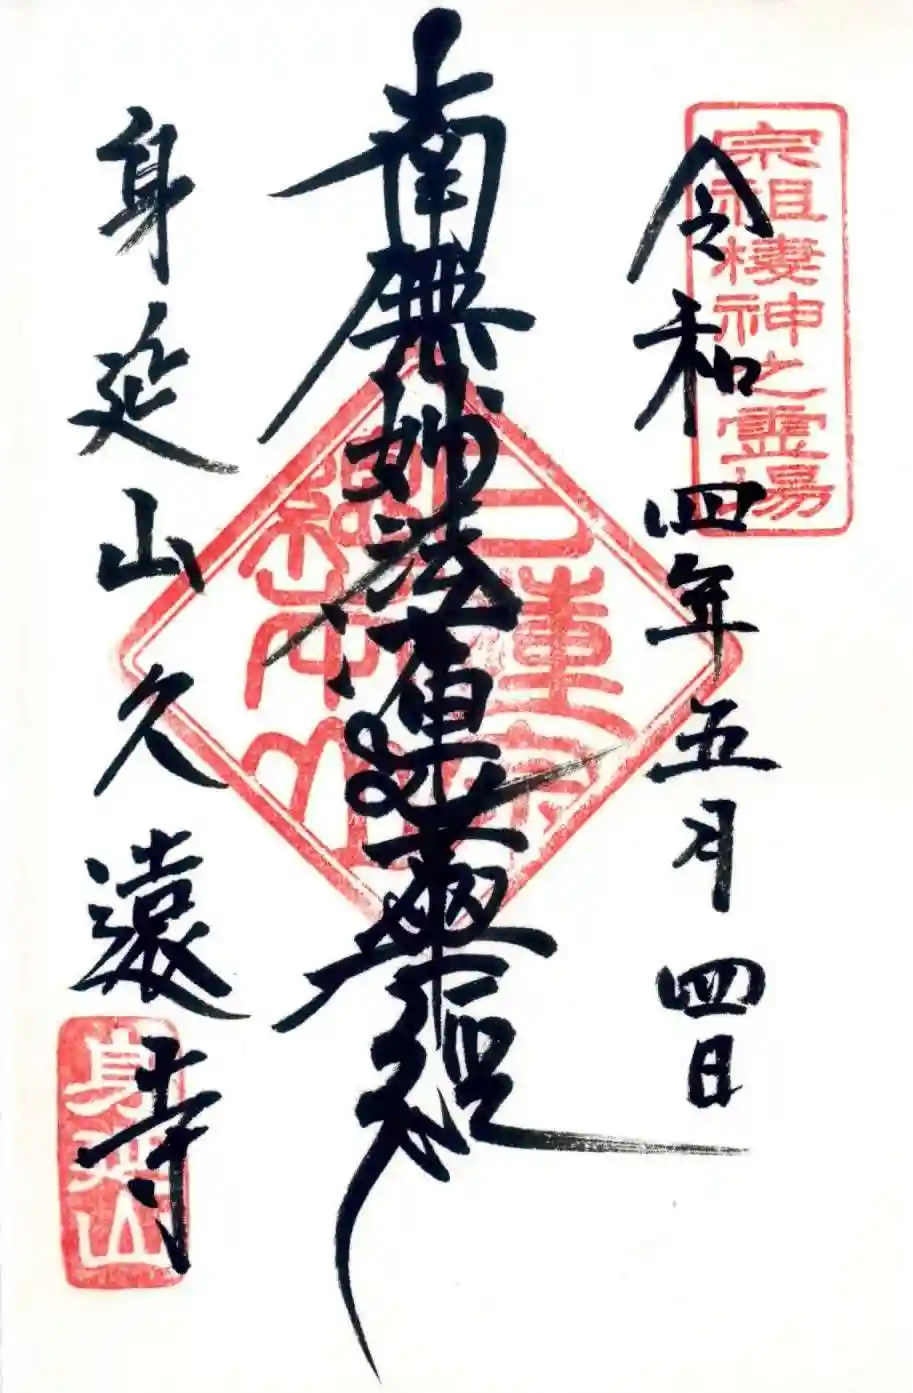 宗祖棲神之霊場
令和四年五月四日
南無妙法蓮華経
日蓮宗
総本山
身延山久遠寺
身延山